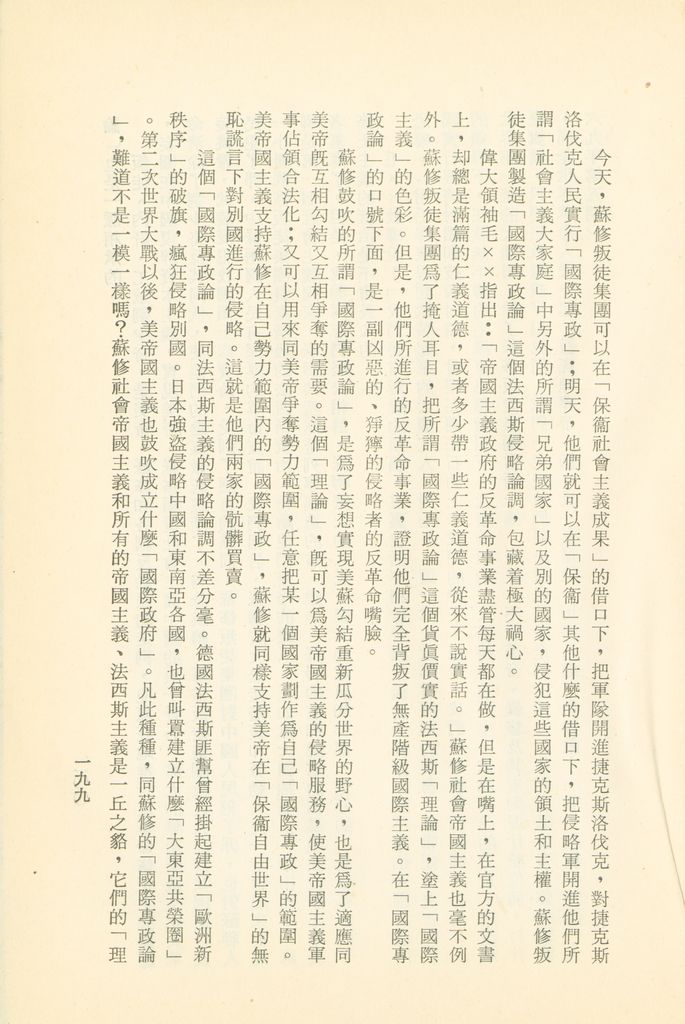 今天，蘇修叛徒集團可以在「保衞社會主義成果」的借口下，把軍隊開進捷克斯洛伐克，對捷克斯
洛伐克人民實行「國際專政」；明天，他們就可以在「保衞」其他什麼的借口下，把侵略軍開進他們所
謂「社會主義大家庭」中另外的所謂「兄弟國家」以及別的國家，侵犯這些國家的領土和主權。蘇修叛
徒集團製造「國際專政論」這個法西斯侵略論調，包藏着極大禍心。
偉大領袖毛××指出：「帝國主義政府的反革命事業盡管每天都在做，但是在嘴上，在官方的文書
上，却總是滿篇的仁義道德，或者多少帶一些仁義道德，從來不說實話。」蘇修社會帝國主義也毫不例
外。蘇修叛徒集團爲了掩人耳目，把所謂「國際專政論」這個貨眞價實的法西斯「理論」，塗上「國際
主義」的色彩。但是，他們所進行的反革命事業，證明他們完全背叛了無產階級國際主義。在「國際專
政論」的口號下面，是一副凶惡的、猙獰的侵略者的反革命嘴臉。
蘇修鼓吹的所謂「國際專政論」，是爲了妄想實現美蘇勾結重新瓜分世界的野心，也是爲了適應同
美帝旣互相勾結又互相爭奪的需要。這個「理論」，旣可以爲美帝國主義的侵略服務，使美帝國主義軍
事佔領合法化；又可以用來同美帝爭奪勢力範圍，任意把某一個國家劃作爲自己「國際專政」的範圍。
美帝國主義支持蘇修在自己勢力範圍內的「國際專政」，蘇修就同樣支持美帝在「保衞自由世界」的無
恥謊言下對別國進行的侵略。這就是他們兩家的骯髒買賣。
這個「國際專政論」，同法西斯主義的侵略論調不差分毫。德國法西斯匪幫曾經掛起建立「歐洲新
秩序」的破旗，瘋狂侵略別國。日本強盜侵略中國和東南亞各國，也曾叫囂建立什麼「大東亞共榮圈」
。第二次世界大戰以後，美帝國主義也鼓吹成立什麼「國際政府」。凡此種種，同蘇修的「國際專政論
」，難道不是一模一樣嗎？蘇修社會帝國主義和所有的帝國主義、法西斯主義是一丘之貉，它們的「理
一九九